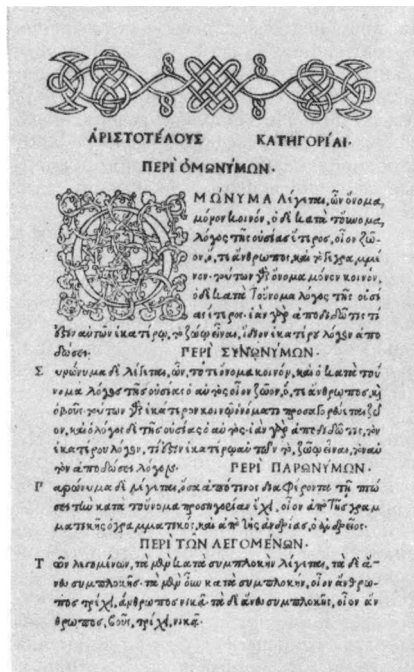 ἈΡΙΣΤΟΤΕΛΟΥΣ ΚΑΤΗΓΟΡΙΑΙ·
ΠΕΡΙ ὉΜΩΝΥΜΩΝ·
ὉΜΩΝΥΜΑ λέγεται, ὧν ὄνομα,
μόνον κοινόν, ὁ δὲ κατὰ τοὔνομα,
λόγος τῆς οὐσίας ἕτερος, οἷον ζῶ-
ον, ὅ, τι ἄνθρωπος, καὶ τὸ γεγραμμέ
νον· τούτων γὰρ ὄνομα μόνον κοινόν,
ὁ δὲ κατὰ τοὔνομα λόγος τῆς οὐσί
ας ἕτερος· ἐὰν γὰρ ἀποδιδῷ τις τί
ἐστιν αὐτῶν ἑκατέρῳ, τὸ ζώῳ εἶναι, ἴδιον ἑκατέρου λόγον ἀπο
δώσει· ΠΕΡΙ ΣΥΝΩΝΥΜΩΝ·
Συνώνυμα δὲ λέγεται, ὧν, τό τε ὄνομα κοινόν, καὶ ὁ κατὰ τοὔ
νομα λόγος τῆς οὐσίας ὁ αὐτός· οἷον ζῶον, ὅ, τι ἄνθρωπος, καὶ
ὁ βοῦς· τούτων γὰρ ἑκάτερον κοινῷ ὀνόματι προσαγορεύεται ζῶ
ον, καὶ ὁ λόγος δὲ τῆς οὐσίας ὁ αὐτός· ἐὰν γὰρ ἀποδιδῷ τις, τὸν
ἑκατέρου λόγον, τί ἐστιν ἑκατέρῳ αὐτῶν τὸ, ζώῳ εἶναι, τὸν αὐ
τὸν ἀποδώσει λόγον· ΠΕΡΙ ΠΑΡΩΝΥΜΩΝ·
Παρώνυμα δὲ λέγεται, ὅσα ἀπό τινος διαφέροντα τῇ πτώ
σει τὴν κατὰ τοὔνομα προσηγορίαν ἔχει, οἷον ἀπὸ τῆς γραμ
ματικῆς ὁ γραμματικός, καὶ ἀπὸ τῆς ἀνδρίας, ὁ ἀνδρεῖος·
ΠΕΡΙ ΤΩΝ ΛΕΓΟΜΕΝΩΝ·
Τῶν λεγομένων, τὰ μὲν κατὰ συμπλοκὴν λέγεται, τὰ δὲ ἄ-
νευ συμπλοκῆς· τὰ μὲν οὖν κατὰ συμπλοκήν, οἷον ἄνθρω-
πος τρέχει, ἄνθρωπος νικᾷ· τὰ δὲ ἄνευ συμπλοκῆς, οἷον ἄν
θρωπος, βοῦς, τρέχει, νικᾷ·